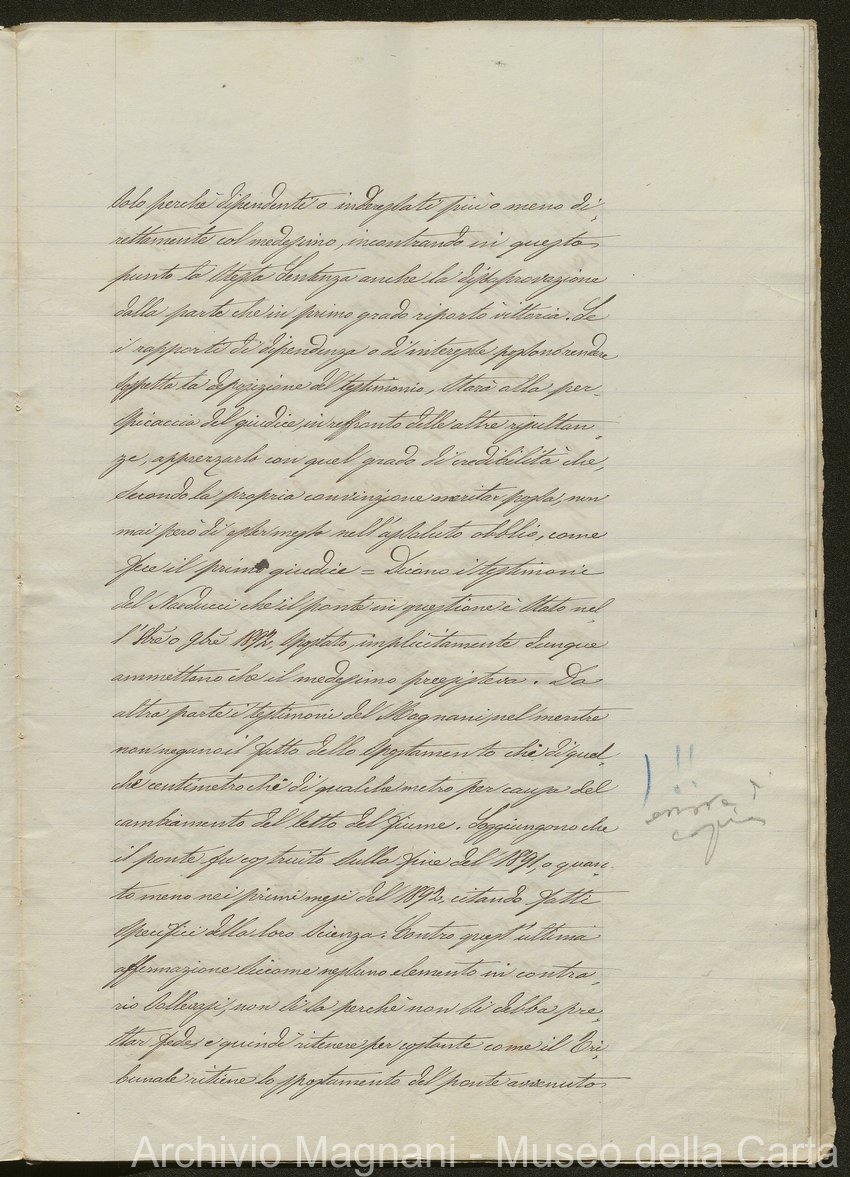 solo perchè dipendenti o interessati più o meno di-
rettamente col medesimo, incontrando in questo
punto la stessa Sentenza anche la disapprovazione
dalla parte che in primo grado riportò vittoria. Se
i rapporti di dipendenza o di interesse possono rendere
sospetta la deposizione del testimonio, starà alla per-
spicaccia del giudice in raffronto delle altre risultan-
ze, apprezzarlo con quel grado di credibilità che,
secondo la propria convinzione meritar possa, non
mai però di esser messo nell'assoluto obblio, come
fece il primo giudice = Dicono i testimoni
del Narducci che il ponte in questione è stato nel
l'8bre o 9bre 1892, spostato, implicitamente dunque
ammettono che il medesimo preesisteva. Da
altra parte i testimoni del Magnani, nel mentre
non negano il fatto dello spostamento chè di qual-
che centimetro chè di qualche metro per causa del
cambiamento del letto del fiume. Soggiungono che
il ponte fu costruito sulla fine del 1891, o quan-
to meno nei primi mesi del 1892, citando fatti
specifici della loro scienza. Contro quest'ultima
affermazione siccome nessuno elemento in contra-
rio sollevasi, non si sa perchè non si debba pre-
star fede, e quindi ritenere per costante come il Tri-
bunale ritiene lo spostamento del ponte avvenuto
!!
errore di
copia
Archivio Magnani - Museo della Carta